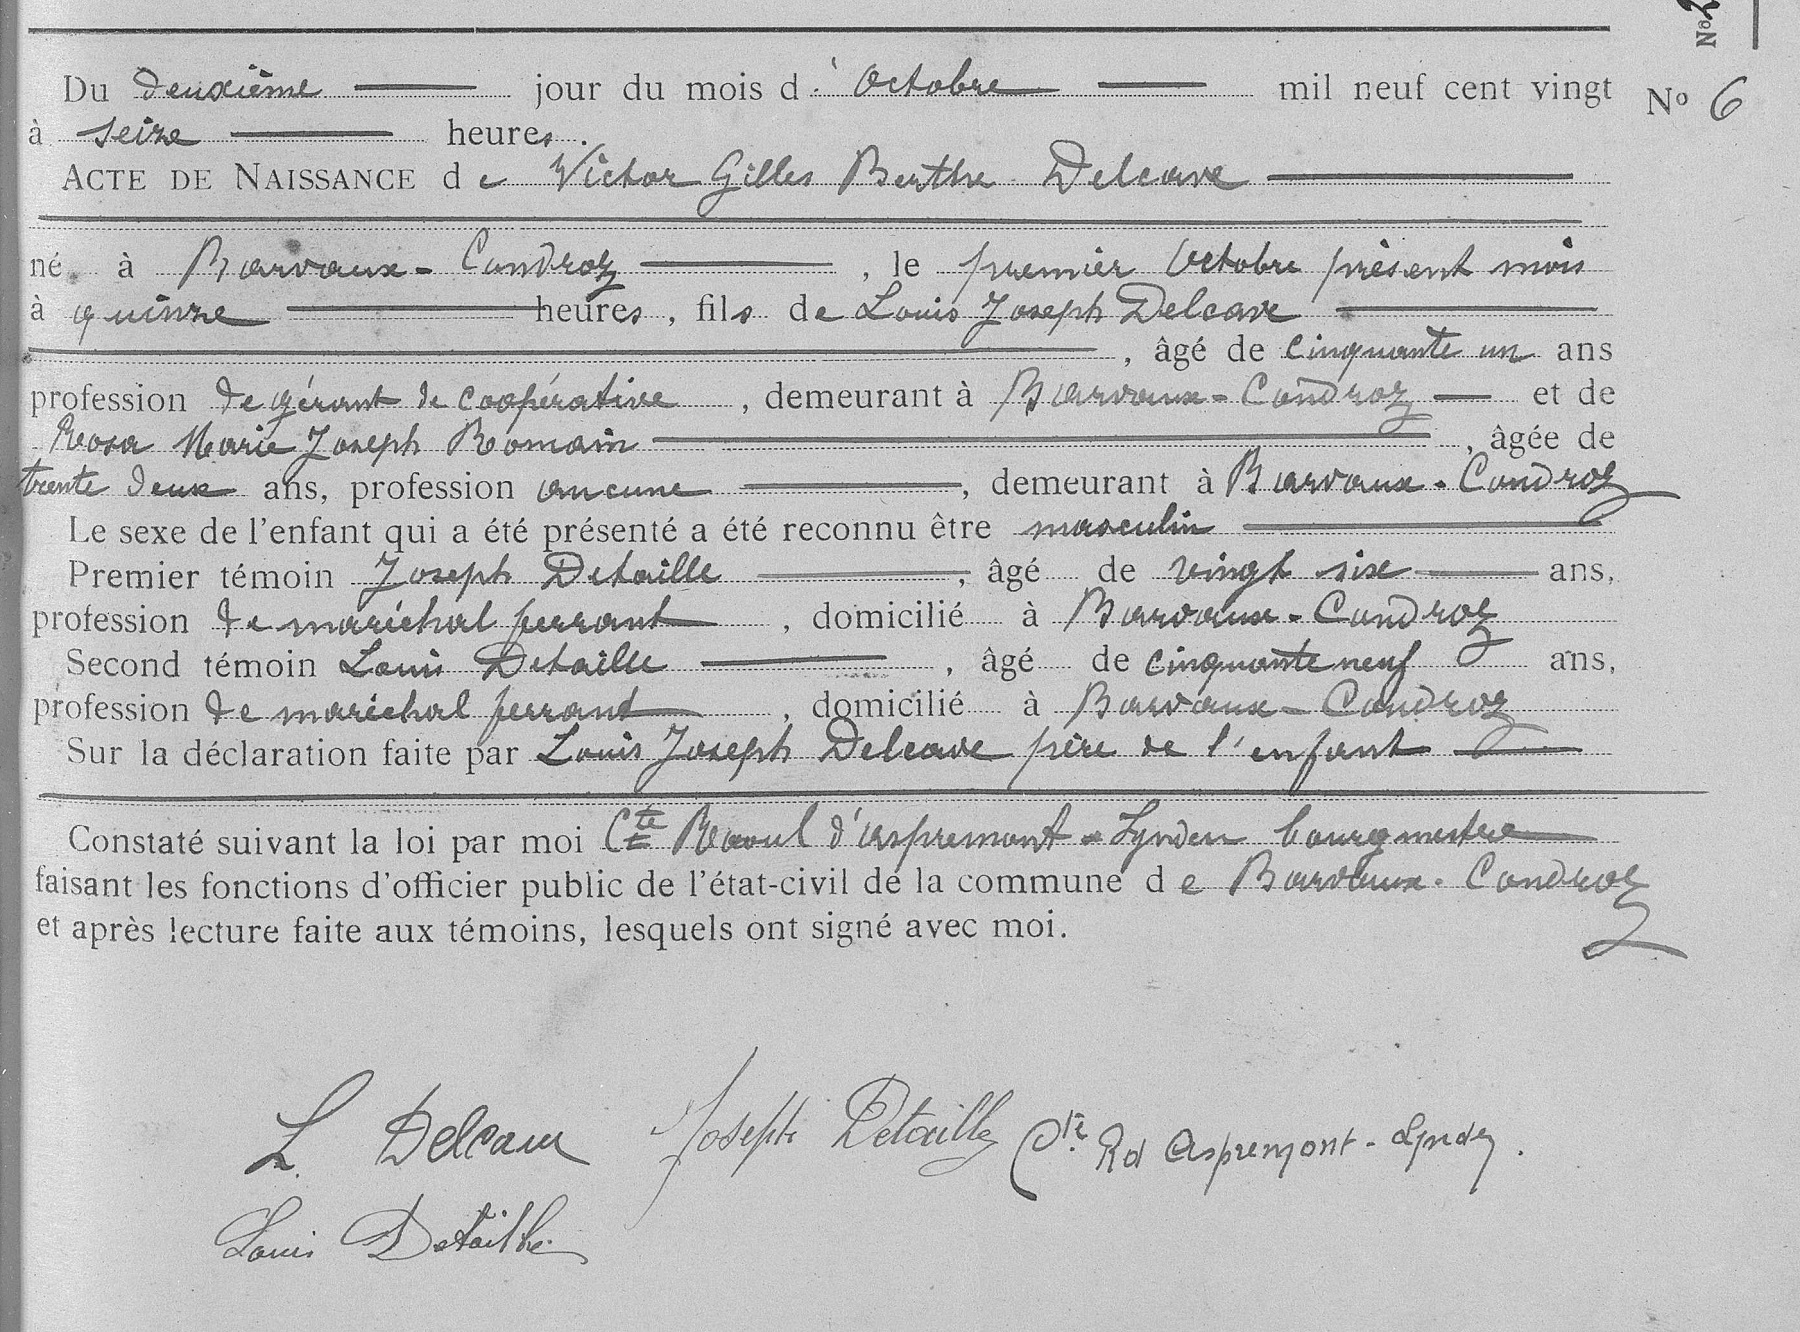 Du deuxième jour du mois d'Octobre mil neuf cent vingt
No 6
à seize heures.
ACTE DE NAISSANCE de Victor Gilles Berthe Delcave
né à Barvaux-Condroz, le premier Octobre présent mois
à quinze heures, fils de Louis Joseph Delcave
, âgé de cinquante un ans
profession de gérant de coopérative, demeurant à Barvaux-Condroz et de
Rosa Marie Joseph Romain, âgée de
trente deux ans, profession aucune, demeurant à Barvaux-Condroz
Le sexe de l'enfant qui a été présenté a été reconnu être masculin
Premier témoin Joseph Detaille, âgé de vingt six ans,
profession de maréchal ferrant, domicilié à Barvaux-Condroz
Second témoin Louis Detaille, âgé de cinquante neuf ans,
profession de maréchal ferrant, domicilié à Barvaux-Condroz
Sur la déclaration faite par Louis Joseph Delcave père de l'enfant
Constaté suivant la loi par moi Cte Raoul d'aspremont-Lynden bourgmestre
faisant les fonctions d'officier public de l'état-civil de la commune de Barvaux-Condroz
et après lecture faite aux témoins, lesquels ont signé avec moi.
L. Delcave Joseph Detaille Cte Rd Aspremont-Lynden.
Louis Detaille